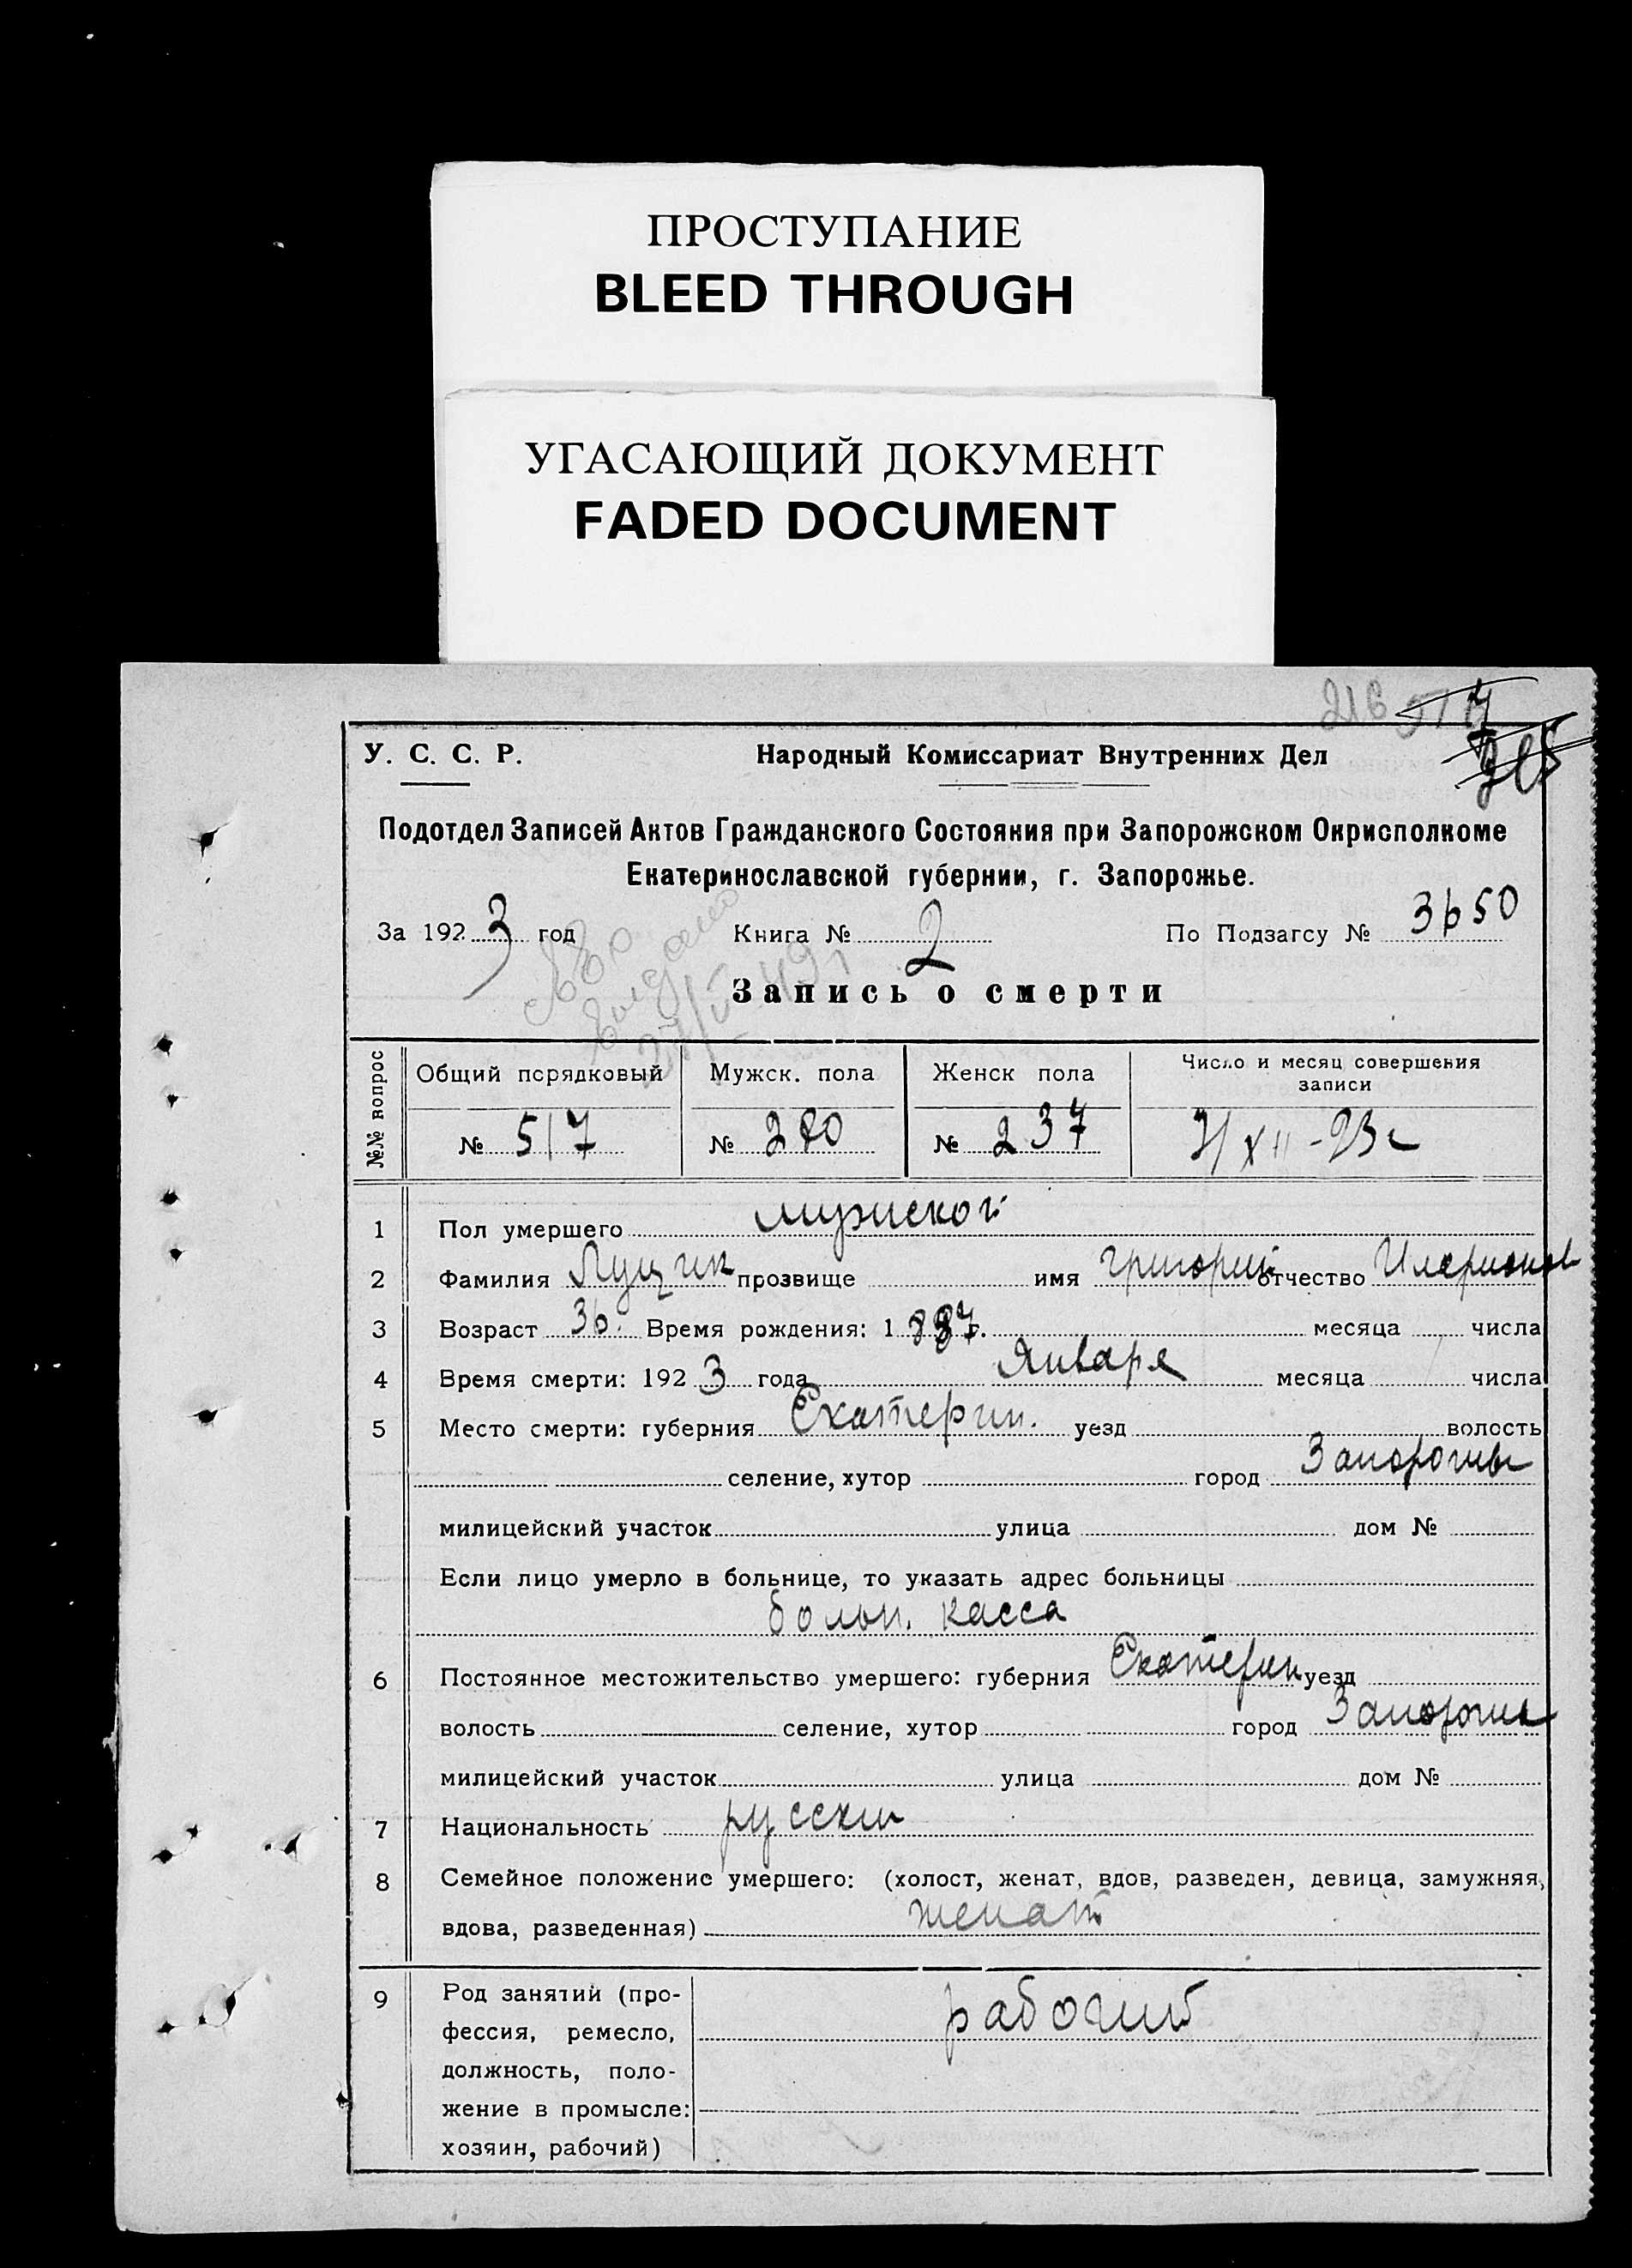 ПРОСТУПАНИЕ
BLEED THROUGH
УГАСАЮЩИЙ ДОКУМЕНТ
FADED DOCUMENT
216
У. С. С. Р. Народный Комиссариат Внутренних Дел
Подотдел Записей Актов Гражданского Состояния при Запорожском Окрисполкоме
Екатеринославской губернии, г. Запорожье.
За 1923 год Книга № 2 По Подзагсу № 3650
Запись о смерти
№№ вопрос Общий порядковый Мужск. пола Женск пола Число и месяц совершения
записи
№ 517 № 280 № 237 7/XII-23г
1 Пол умершего мужской
2 Фамилия Лущик прозвище имя Григорий отчество Иларионов
3 Возраст 36. Время рождения: 1887г. месяца числа
4 Время смерти: 1923 года Января месяца числа
5 Место смерти: губерния Екатерин. уезд волость
селение, хутор город Запорожье
милицейский участок улица дом №
Если лицо умерло в больнице, то указать адрес больницы
больн. касса
6 Постоянное местожительство умершего: губерния Екатерин уезд
волость селение, хутор город Запорожье
милицейский участок улица дом №
7 Национальность русский
8 Семейное положение умершего: (холост, женат, вдов, разведен, девица, замужняя,
вдова, разведенная) женат
9 Род занятий (про-
фессия, ремесло, рабочий
должность, поло-
жение в промысле:
хозяин, рабочий)